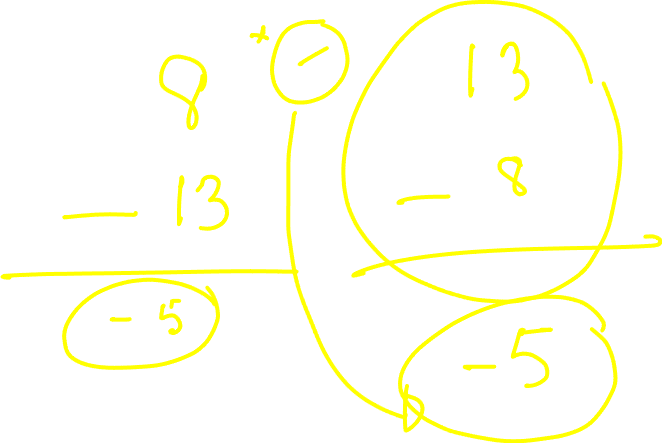 8
− 13
− 5
+ −
13
− 8
− 5